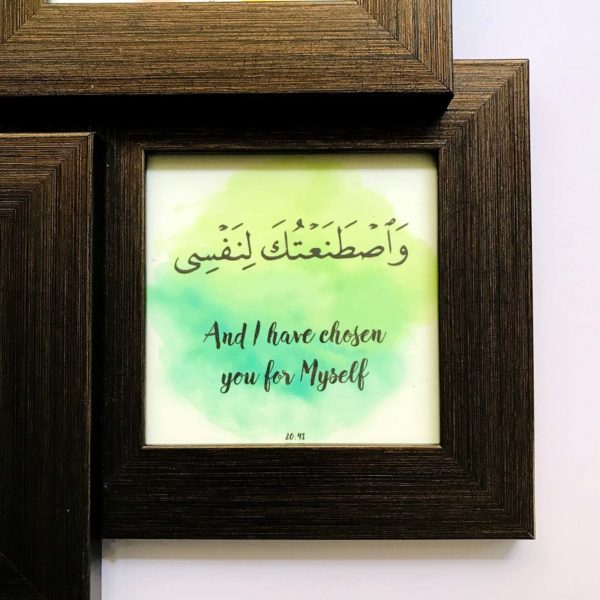 وَٱصْطَنَعْتُكَ لِنَفْسِى
And I have chosen
you for Myself
20:41